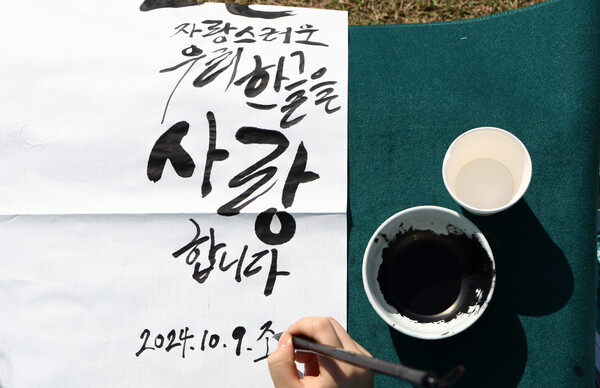 자랑스러운
우리 한글을
사랑
합니다
2024.10.9. 조